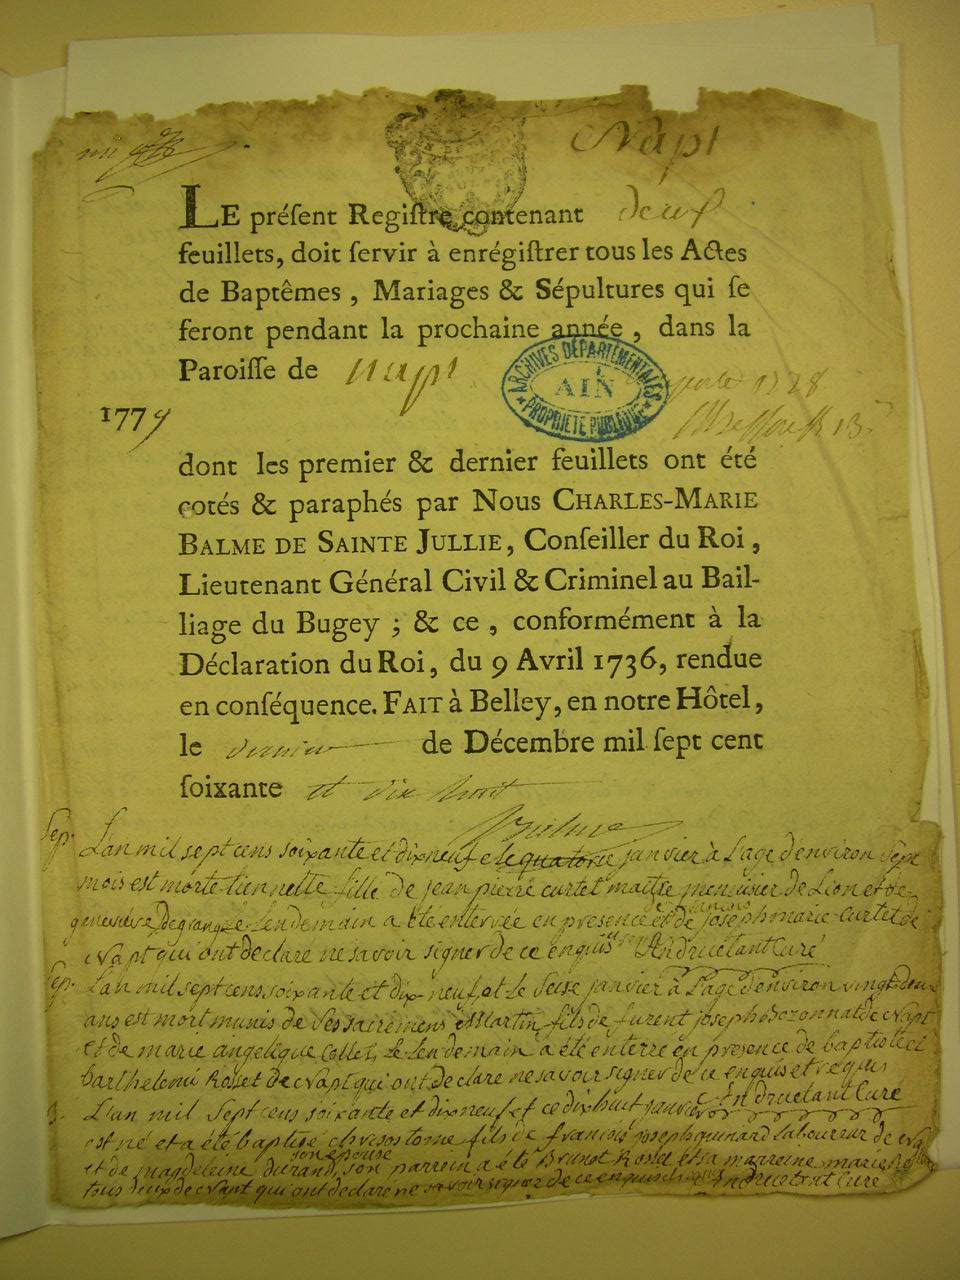 Napt
LE préſent Regiſtre contenant deux
feuillets, doit ſervir à enrégiſtrer tous les Actes
de Baptêmes, Mariages & Sépultures qui ſe
feront pendant la prochaine année, dans la
Paroiſſe de Napt
ARCHIVES DÉPARTEMENTALES
AIN
PROPRIÉTÉ PUBLIQUE
1779
dont les premier & dernier feuillets ont été
cotés & paraphés par Nous CHARLES-MARIE
BALME DE SAINTE JULLIE, Conſeiller du Roi,
Lieutenant Général Civil & Criminel au Bail-
liage du Bugey ; & ce, conformément à la
Déclaration du Roi, du 9 Avril 1736, rendue
en conſéquence. FAIT à Belley, en notre Hôtel,
le dernier de Décembre mil ſept cent
ſoixante et dix huit
Sep. L'an mil sept cens soixante et dix neuf et le quatorze janvier à l'age d'environ sept
mois est morte tiennette fille de jean pierre curtet maitre menuisier de Lion et de
genevieve Degrange Le Lendemain a été enterrée en presence et de joseph marie curtet de
Napt qui ont declaré ne savoir signer de ce enquis Andruetant Curé
Sep. L'an mil sept cens soixante et dix neuf et le seise janvier à l'age d'environ vingt deux
ans est mort munis de ses sacremens Martin fils de furent joseph Bezonnat de Napt
et de marie angelique Collet, Le Lendemain a été enterré en presence de baptiste et
barthelemi Rosset de Napt qui ont declaré ne savoir signer de ce enquis et requis
Andruetant Curé
L'an mil sept cens soixante et dix neuf et ce dix huit janvier
est né et a été baptisé chrisostome fils de francois joseph guinard Laboureur de
et de magdeleine durand, son epouse son parrein a été Brunot Rosset et sa marreine marie
tous deux de Napt qui ont declaré ne savoir signer de ce enquis Andruetant Curé